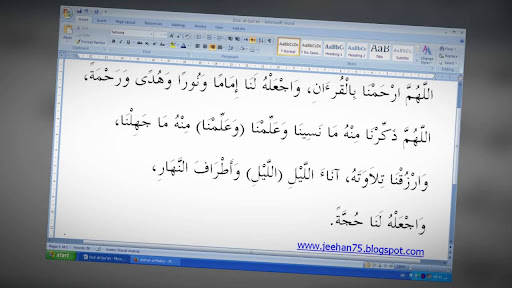 Du'a' al-Qur'an - Microsoft Word
Home
Insert
Page Layout
References
Mailings
Review
View
اللَّهُمَّ ارْحَمْنَا بِالْقُرْءَانِ، وَاجْعَلْهُ لَنَا إِمَامًا وَنُورًا وَهُدًى وَرَحْمَةً،
اللَّهُمَّ ذَكِّرْنَا مِنْهُ مَا نَسِينَا وَعَلِّمْنَا (وَعَلِّمْنَا) مِنْهُ مَا جَهِلْنَا،
وَارْزُقْنَا تِلَاوَتَهُ، آنَاءَ اللَّيْلِ (اللَّيْلِ) وَأَطْرَافَ النَّهَارِ،
وَاجْعَلْهُ لَنَا حُجَّةً.
www.jeehan75.blogspot.com
start